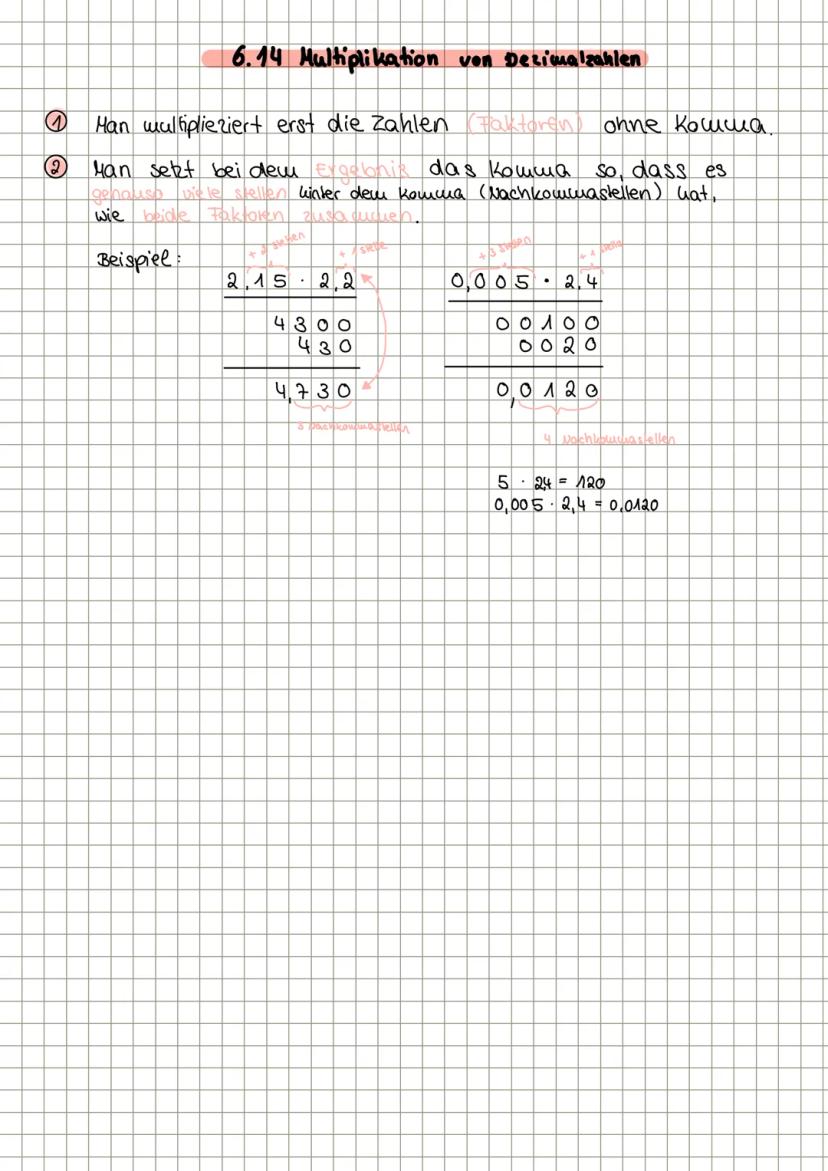 6.14 Multiplikation von Dezimalzahlen
① Man multiplieziert erst die Zahlen (Faktoren) ohne Komma.
② Man setzt bei dem Ergebnis das Komma so, dass es
genauso viele stellen hinter dem Komma (Nachkommastellen) hat,
wie beide Faktoren zusammen.
Beispiel:
+ 2 stellen + 1 stelle
2,15 · 2,2
4300
430
4,730
3 Nachkommastellen
+ 3 stellen + 1 stelle
0,005 · 2,4
00100
0020
0,0120
4 Nachkommastellen
5 · 24 = 120
0,005 · 2,4 = 0,0120